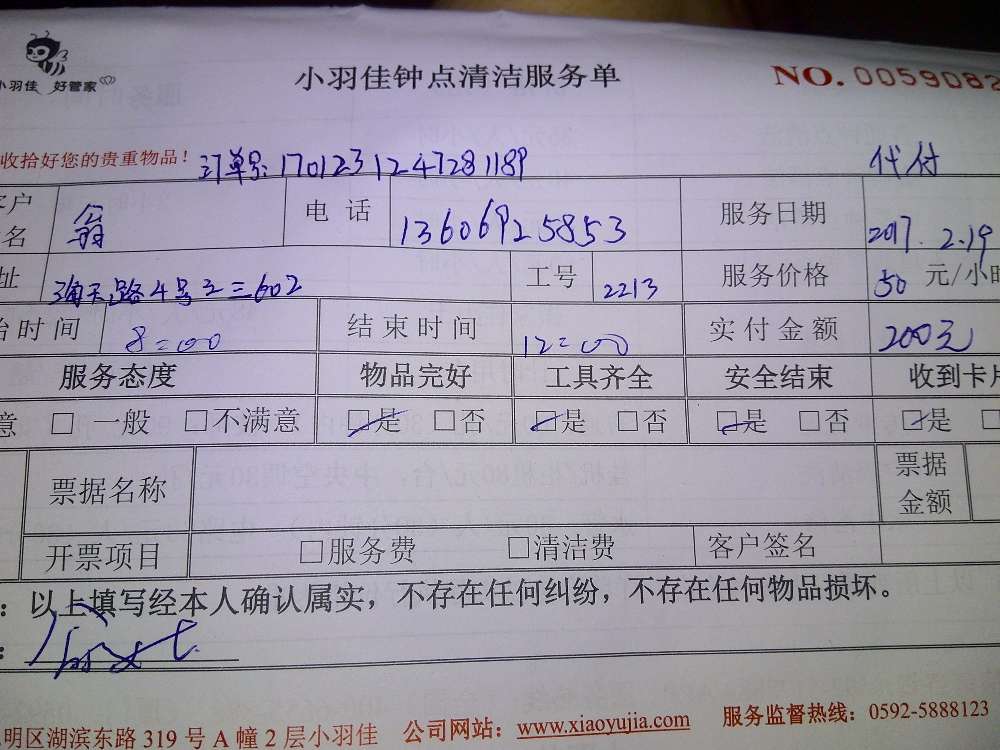 小羽佳 好管家
小羽佳钟点清洁服务单
NO. 0059082
收拾好您的贵重物品! 订单号: 1701231247281189 代付
客户 名 翁 电话 13606925853 服务日期 2017. 2.19
址 路4号 602 工号 2213 服务价格 50 元/小时
始时间 8:00 结束时间 12:00 实付金额 200元
服务态度 物品完好 工具齐全 安全结束 收到卡片
意 □ 一般 □不满意 ☑是 □否 ☑是 □否 ☑是 □否 ☑是 □
票据名称 票据金额
开票项目 □服务费 □清洁费 客户签名
: 以上填写经本人确认属实，不存在任何纠纷，不存在任何物品损坏。
:
明区湖滨东路 319 号 A 幢 2 层小羽佳 公司网站: www.xiaoyujia.com 服务监督热线: 0592-5888123